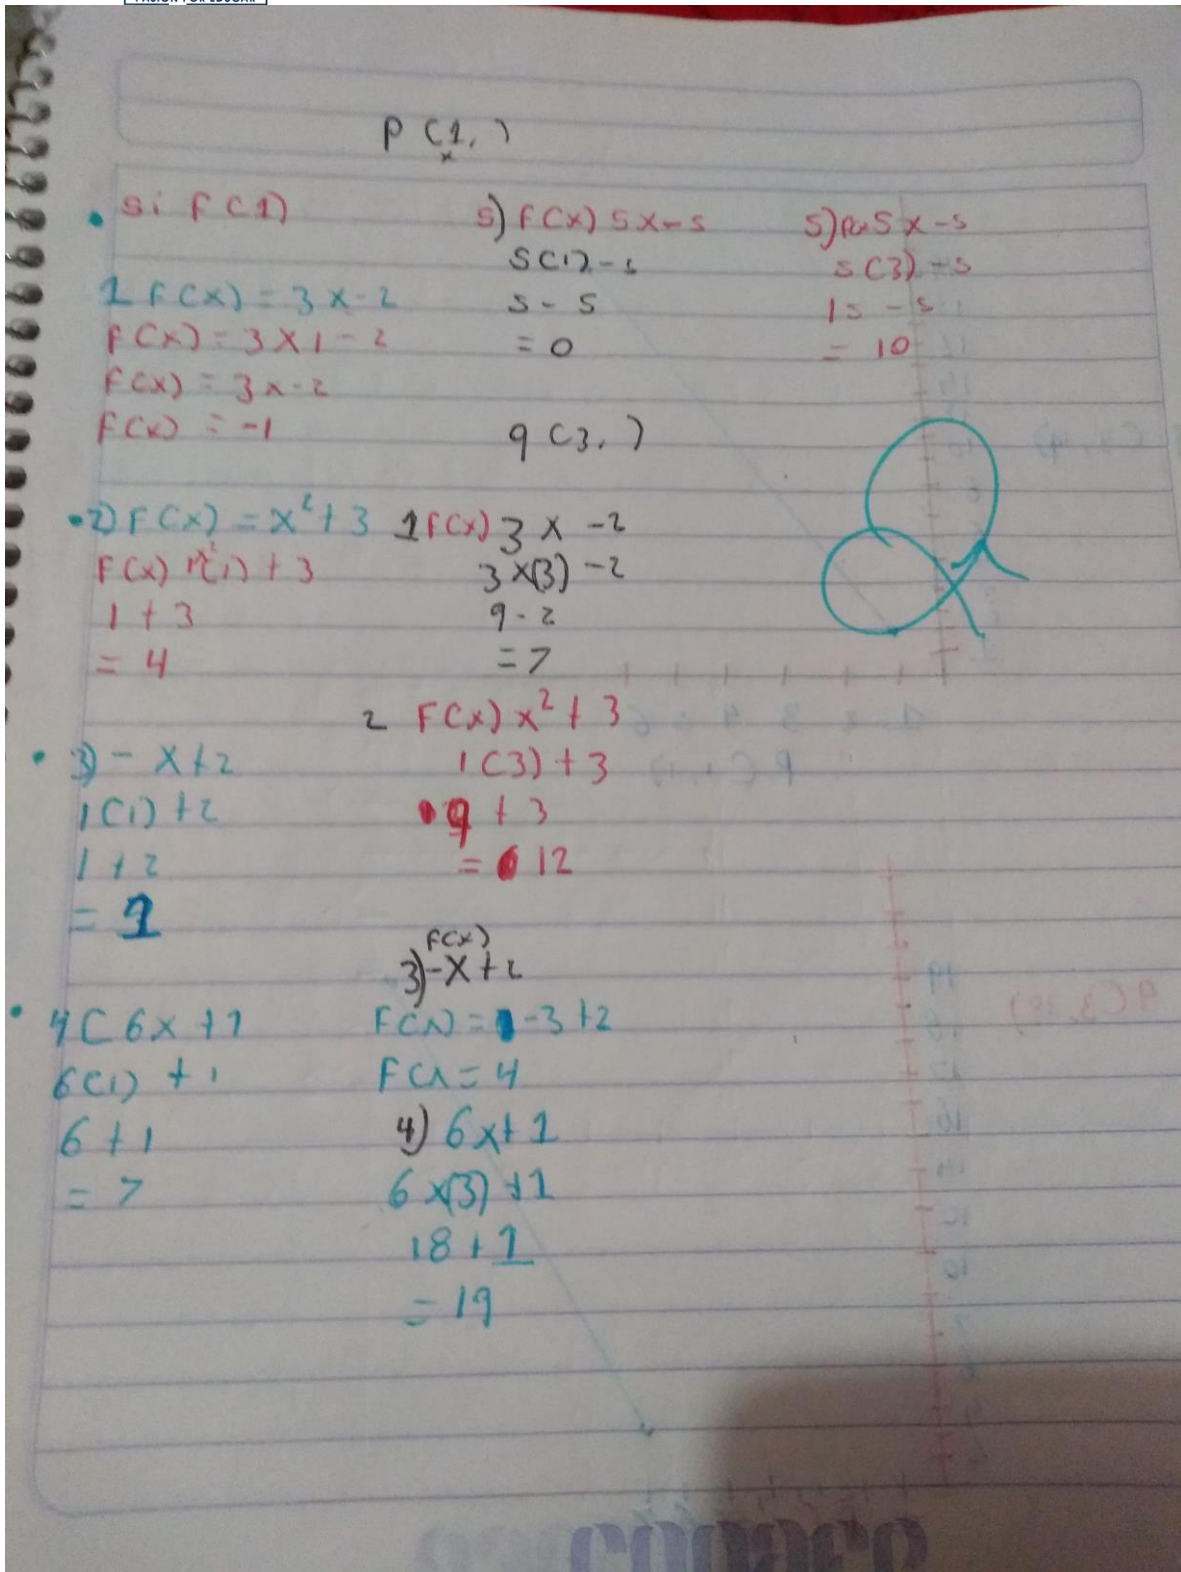 P (1, )
x
si F (1)
1 F(x) = 3x-2
F(x) = 3x1-2
F(x) = 3x-2
F(x) = -1
2) F(x) = x² + 3
F(x) 1²(1) + 3
1 + 3
= 4
3) - x+2
1(1) +2
1 + 2
= 1
4( 6x+1
6(1) + 1
6 + 1
= 7
5) F(x) 5x-5
5(1)-5
5 - 5
= 0
q (3, )
1 F(x) 3x -2
3x(3) -2
9 - 2
= 7
2 F(x) x² + 3
1(3) + 3
9 + 3
= 12
F(x)
3) -x+2
F(x) = -3+2
F(x = 4
4) 6x+1
6x(3) +1
18 + 1
= 19
5) 5x-5
5(3) -5
15 - 5
= 10